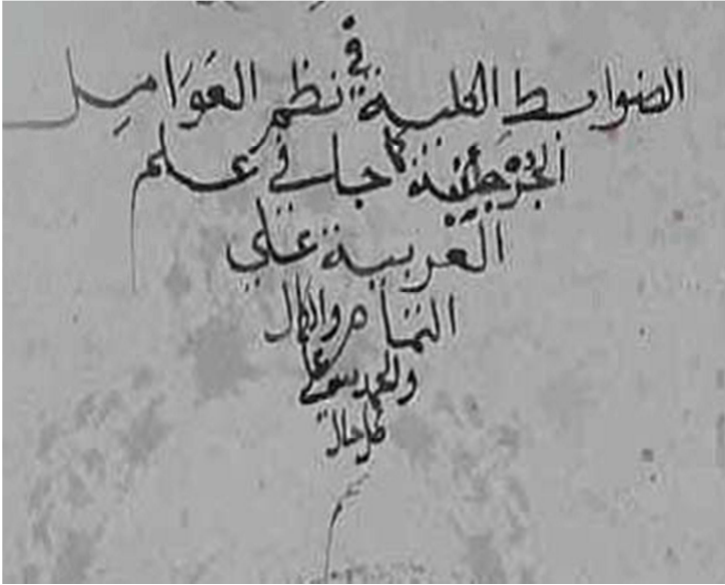 الضوابط الكلية في نظم العَوَامِل
الجُرْجَانية كما جا في علم
العربية علي
التمام والكمال
والحمد لله علي
كل حال